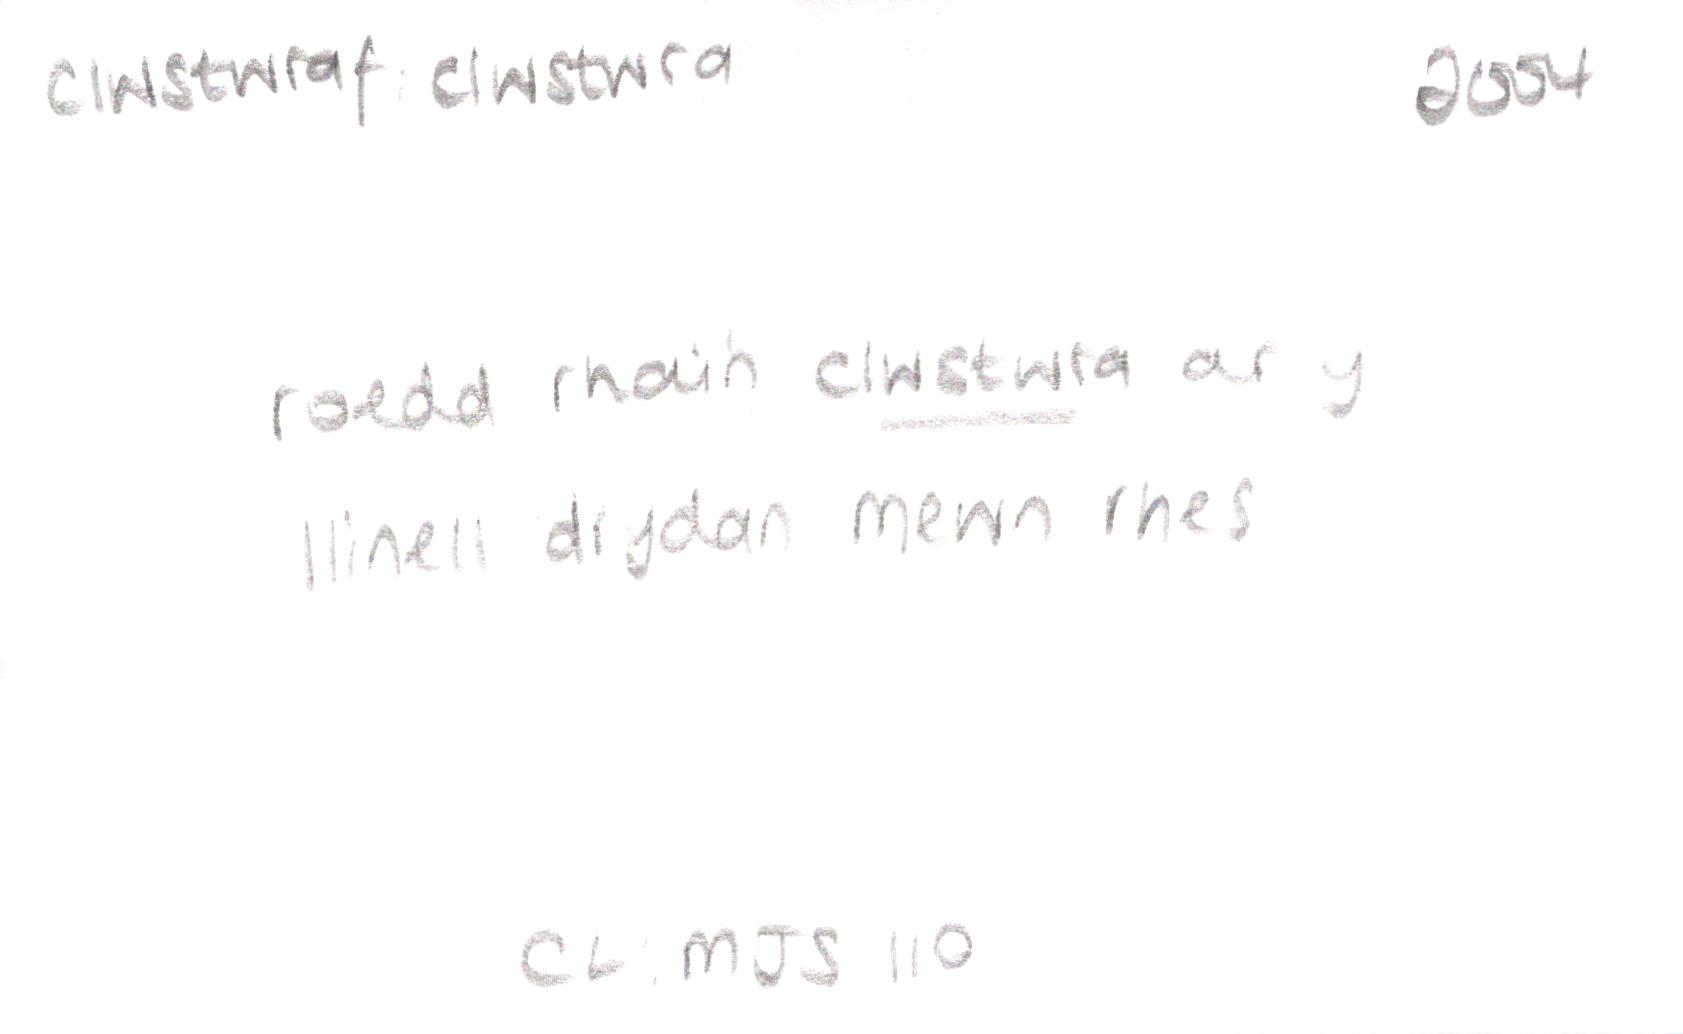 clwstwraf: clwstwra 2004
roedd rhain clwstwra ar y
llinell drydan mewn rhes
CL: MJS 110